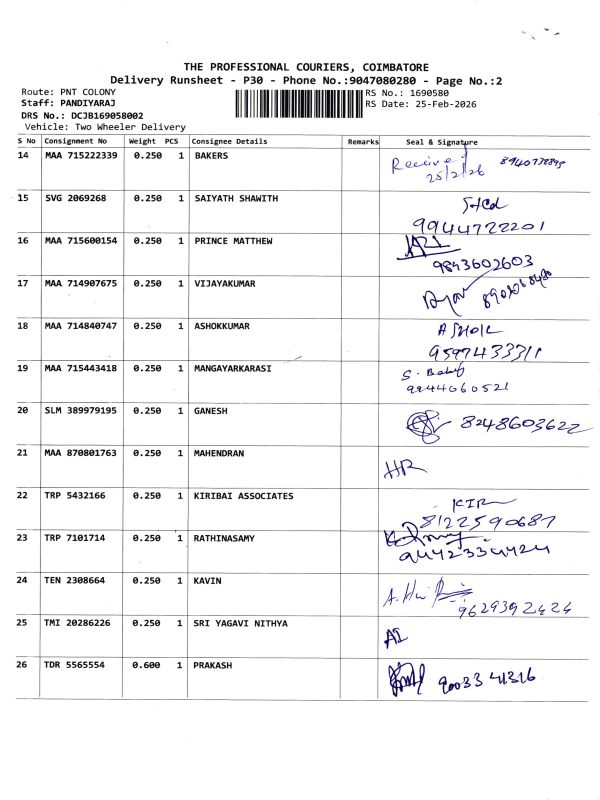 THE PROFESSIONAL COURIERS, COIMBATORE
Delivery Runsheet - P30 - Phone No.:9047080280 - Page No.:2
Route: PNT COLONY
RS No.: 1690580
Staff: PANDIYARAJ
RS Date: 25-Feb-2026
DRS No.: DCJB169058002
Vehicle: Two Wheeler Delivery
S No Consignment No Weight PCS Consignee Details Remarks Seal & Signature
14 MAA 715222339 0.250 1 BAKERS Received
25/2/26
15 SVG 2069268 0.250 1 SAIYATH SHAWITH
9944722201
16 MAA 715600154 0.250 1 PRINCE MATTHEW
9843602603
17 MAA 714907675 0.250 1 VIJAYAKUMAR
18 MAA 714840747 0.250 1 ASHOKKUMAR ASHOK
9597433311
19 MAA 715443418 0.250 1 MANGAYARKARASI S. Baby
9244060521
20 SLM 389979195 0.250 1 GANESH 8248603622
21 MAA 870801763 0.250 1 MAHENDRAN HR
22 TRP 5432166 0.250 1 KIRIBAI ASSOCIATES KIR
8122590687
23 TRP 7101714 0.250 1 RATHINASAMY
9442334424
24 TEN 2308664 0.250 1 KAVIN
9629392424
25 TMI 20286226 0.250 1 SRI YAGAVI NITHYA
26 TDR 5565554 0.600 1 PRAKASH 9003341316